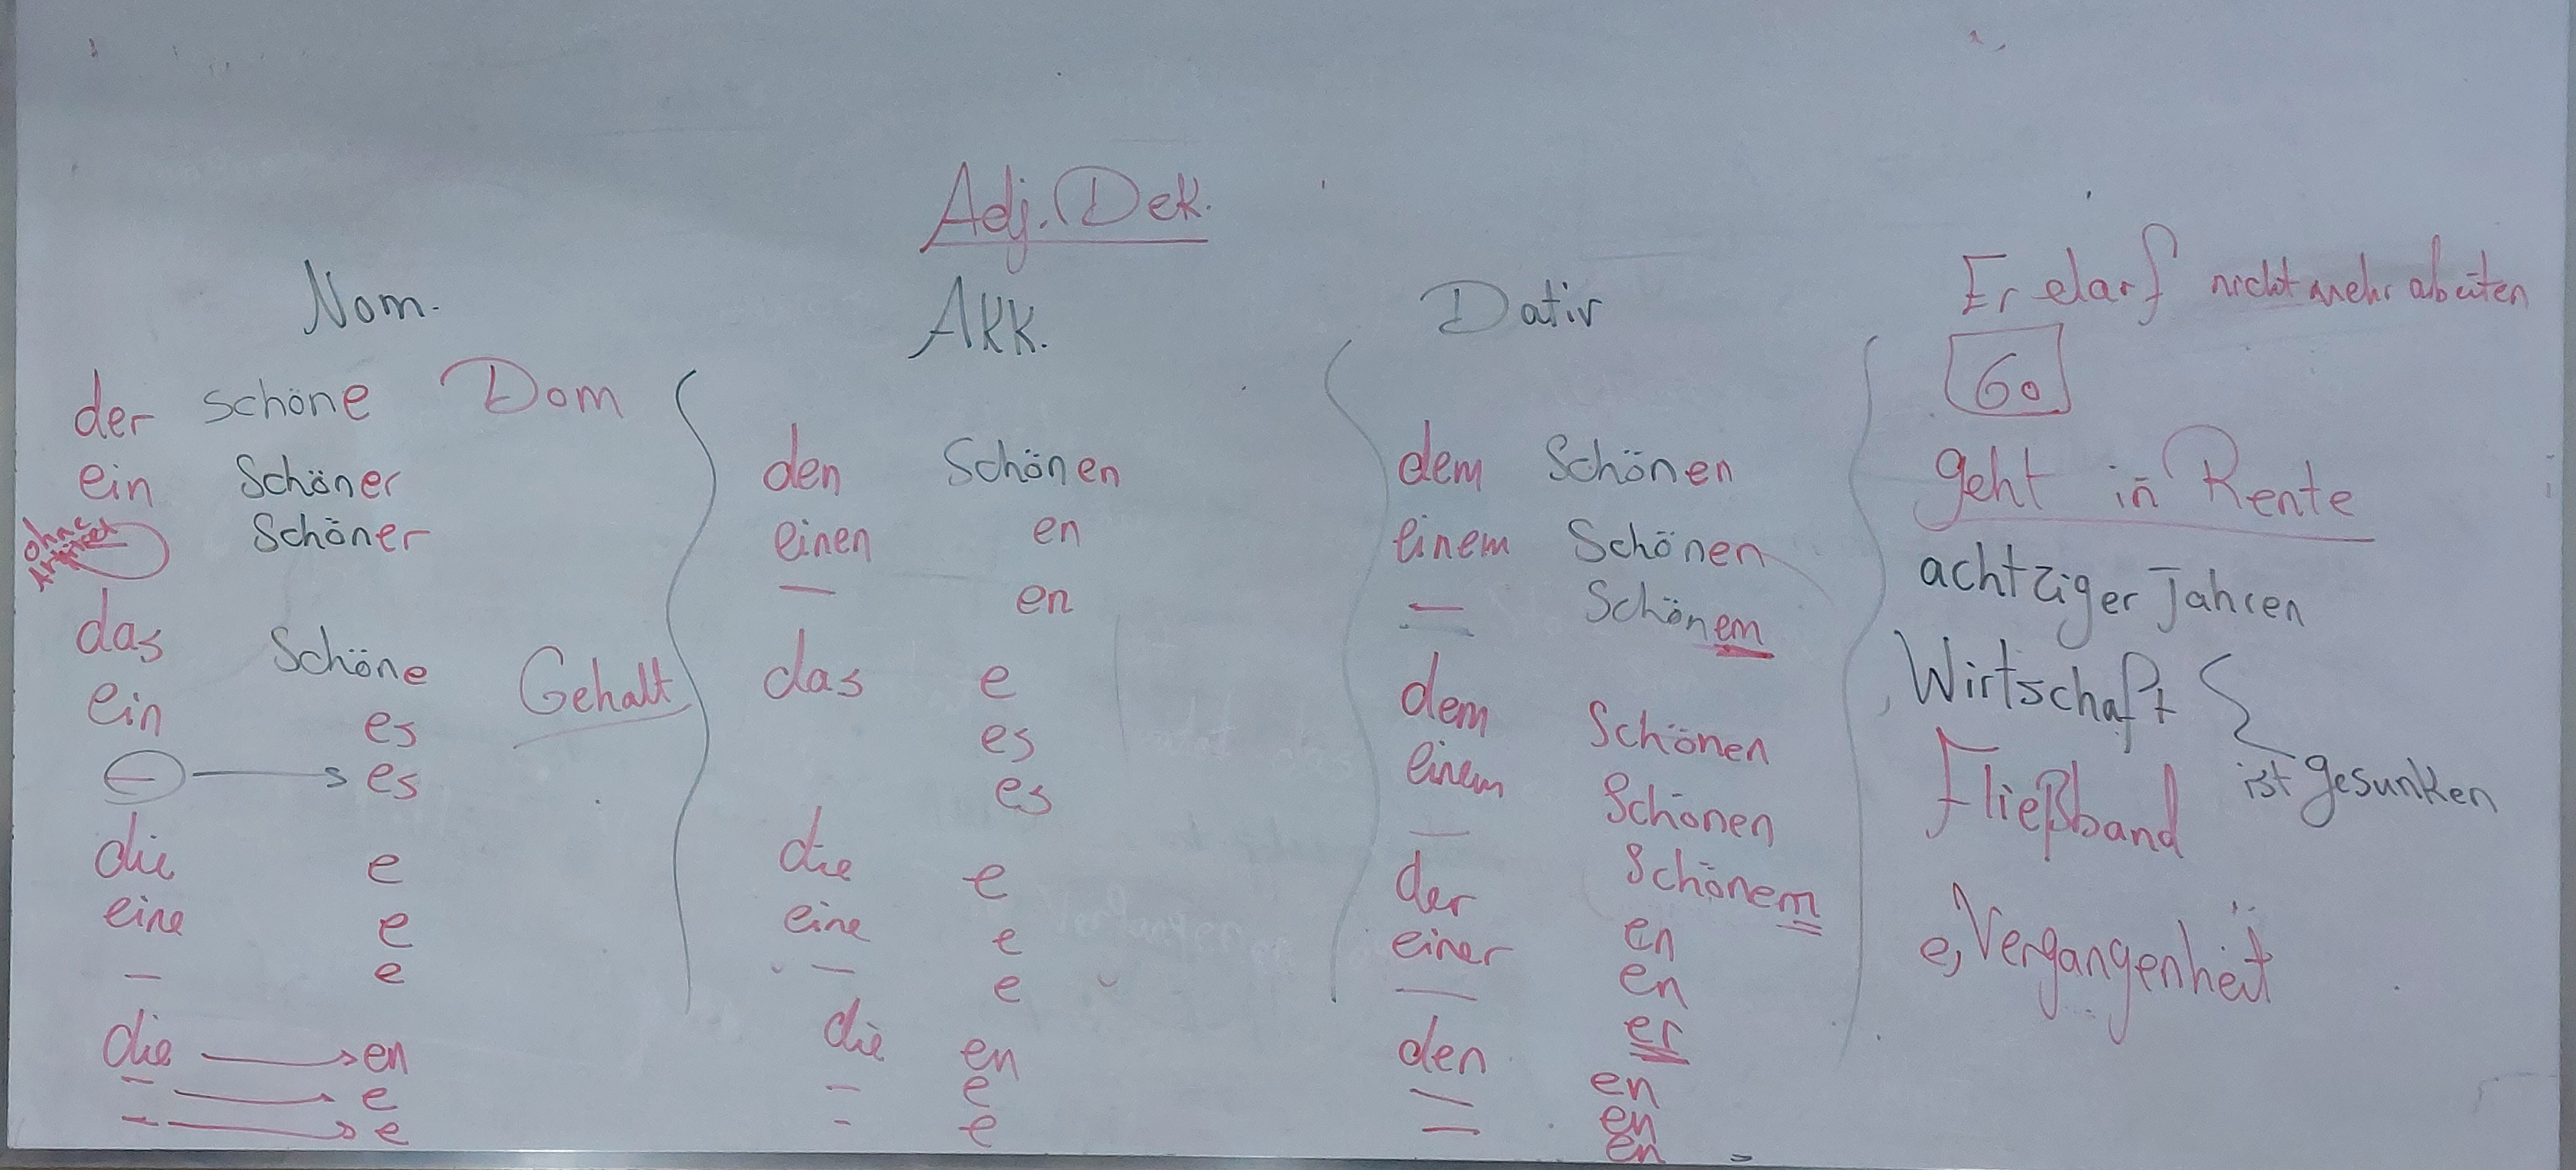 Adj. Dek.
Nom.
der schöne Dom
ein Schöner
ohne Artikel — Schöner
das Schöne Gehalt
ein es
— → es
die e
eine e
— e
die → en
— → e
— → e
Akk.
den Schönen
einen en
— en
das e
es
es
die e
eine e
— e
die en
— e
— e
Dativ
dem Schönen
einem Schönen
— Schönem
dem Schönen
einem Schönen
— Schönem
der en
einer en
— er
den en
— en
— en
Er darf nicht mehr abeiten
60
geht in Rente
achtziger Jahren
Wirtschaft
ist gesunken
Fließband
e, Vergangenheit